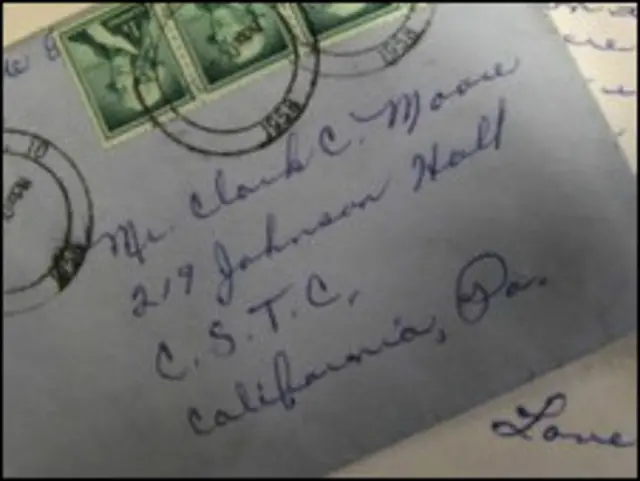 1958
1958
Mr. Clark C. Moore
219 Johnson Hall
C.S.T.C.
California, Pa.
Love